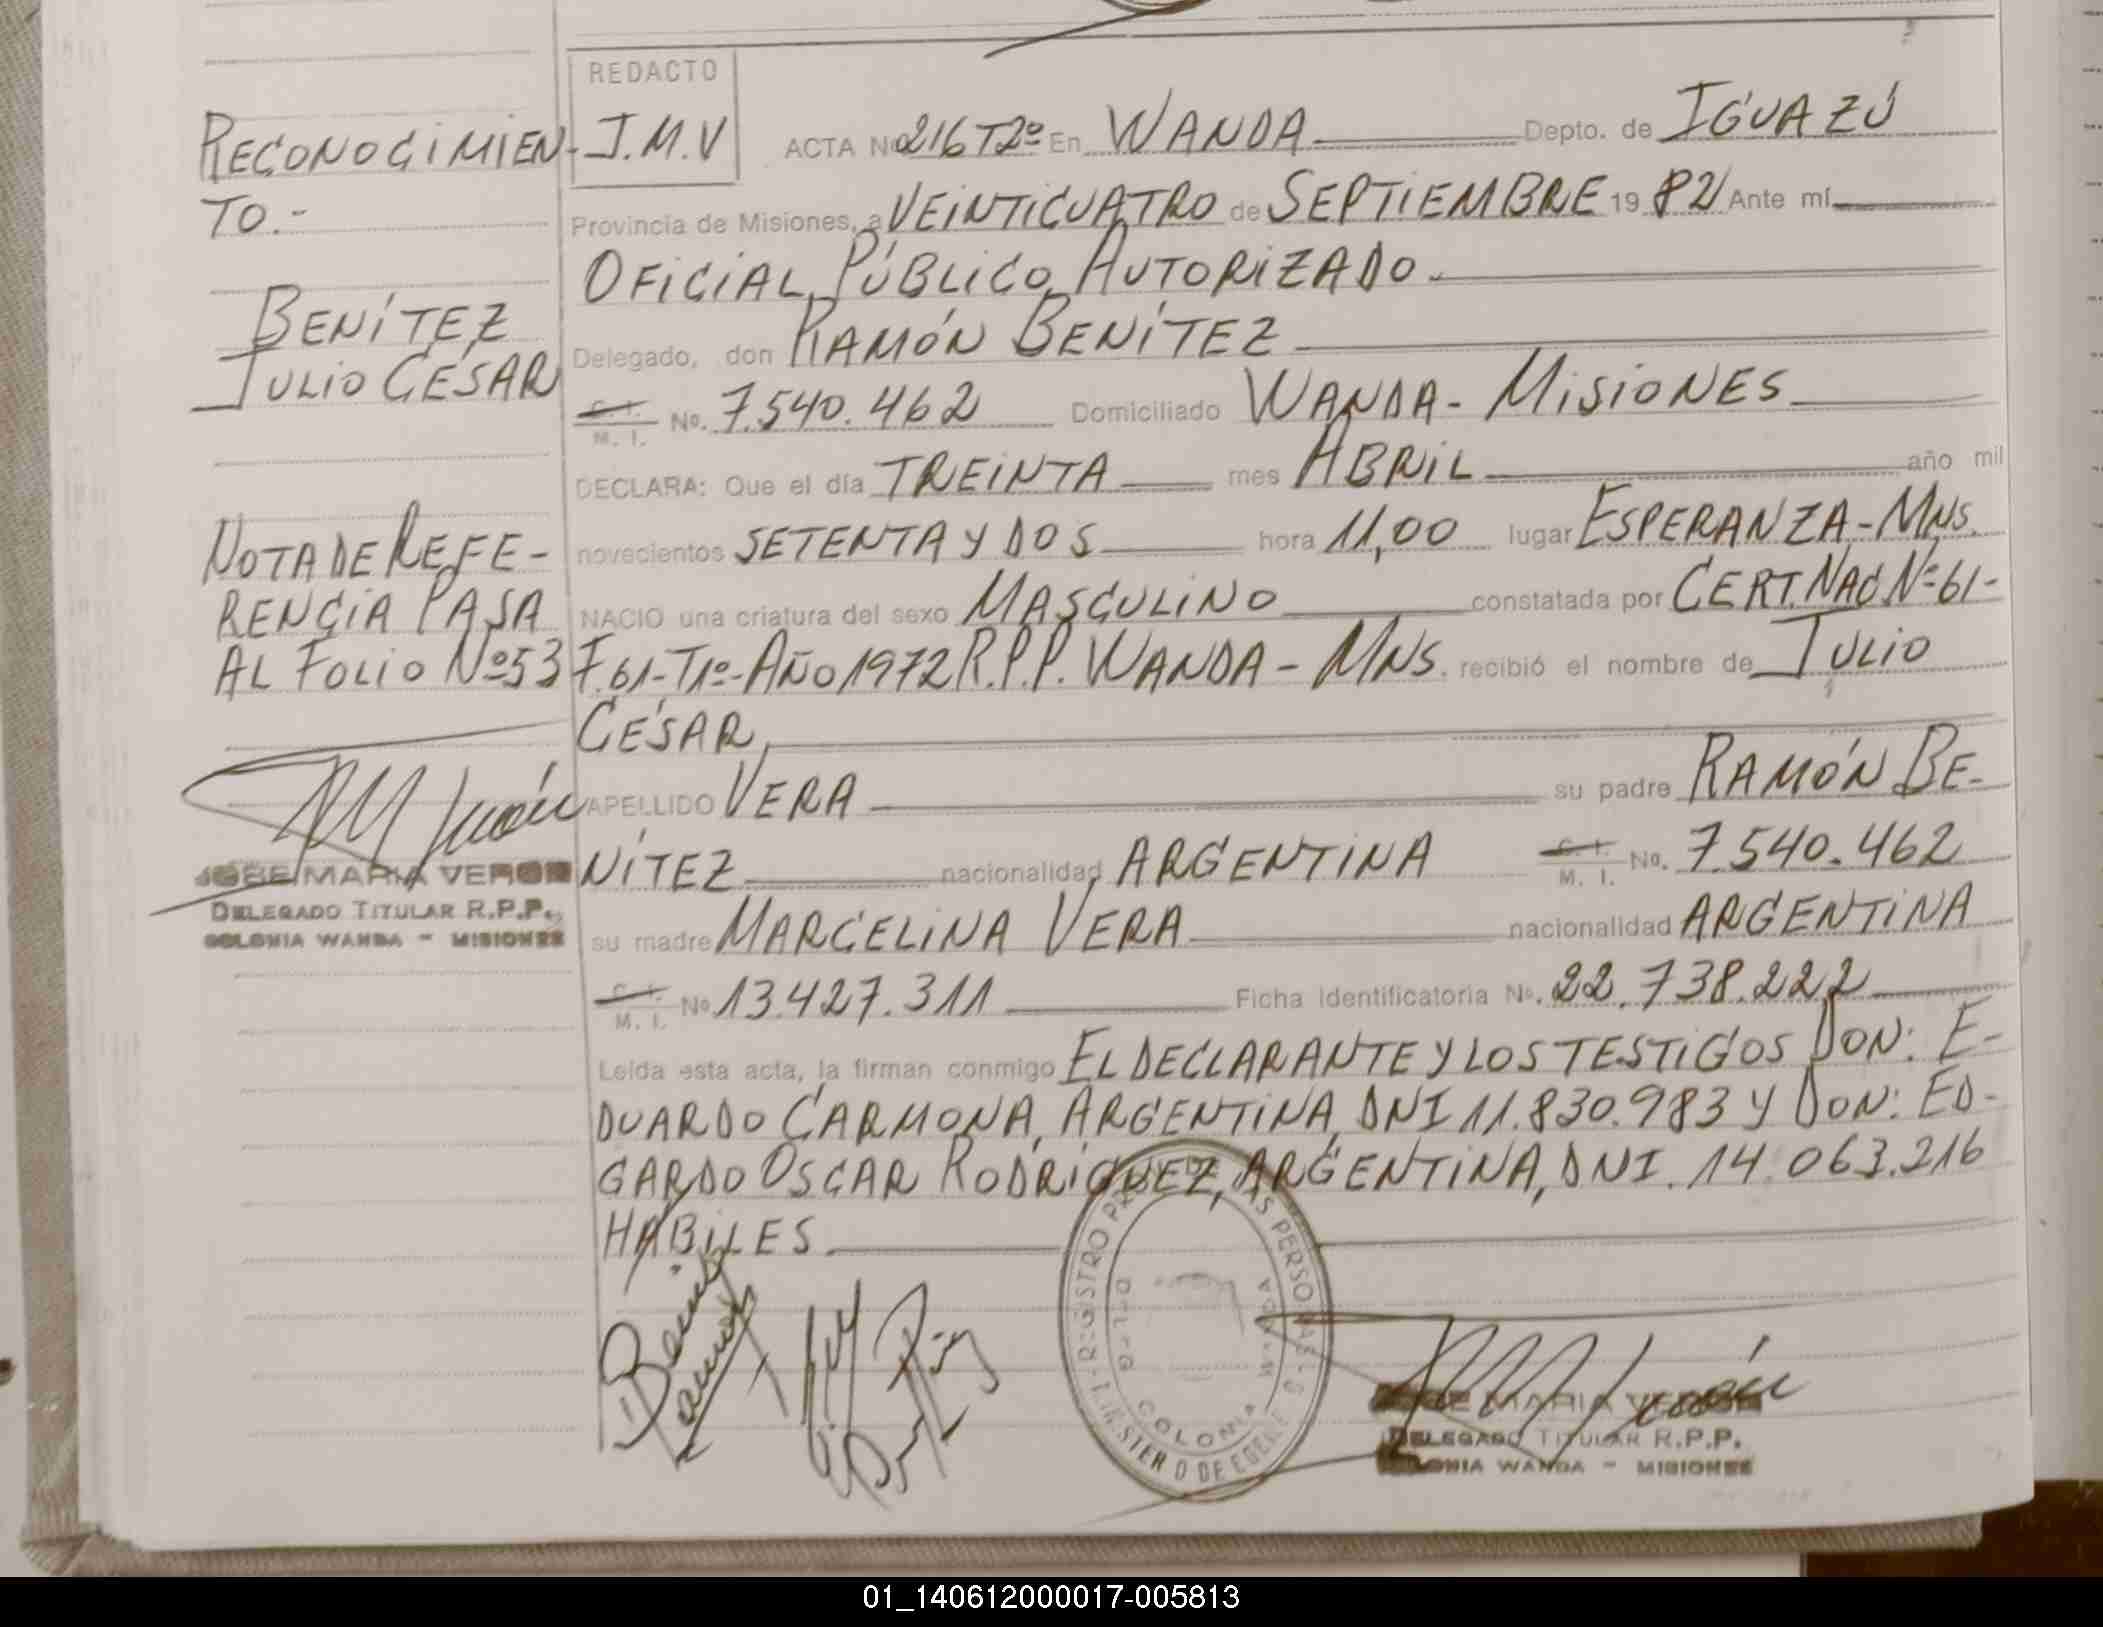 REDACTO
J.M.V
ACTA Nº 216 T2º En WANDA Depto. de IGUAZÚ
Provincia de Misiones, a VEINTICUATRO de SEPTIEMBRE 19 82 Ante mí
OFICIAL PÚBLICO AUTORIZADO.
Delegado, don RAMÓN BENÍTEZ
C. I. M. I. No. 7.540.462 Domiciliado WANDA - MISIONES
DECLARA: Que el día TREINTA mes ABRIL año mil
novecientos SETENTA Y DOS hora 11,00 lugar ESPERANZA - MNS.
NACIO una criatura del sexo MASCULINO constatada por CERT. NAC. Nº 61-
F. 61 - T1º - AÑO 1972 R.P.P. WANDA - MNS. recibió el nombre de JULIO
CÉSAR,
APELLIDO VERA su padre RAMÓN BE-
NÍTEZ nacionalidad ARGENTINA C. I. M. I. No. 7.540.462
su madre MARCELINA VERA nacionalidad ARGENTINA
C. I. M. I. No 13.427.311 Ficha Identificatoria No. 22.738.222
Leída esta acta, la firman conmigo EL DECLARANTE Y LOS TESTIGOS DON: E-
DUARDO CARMONA, ARGENTINA, DNI 11.830.983 Y DON: ED-
GARDO OSCAR RODRÍGUEZ, ARGENTINA, DNI. 14.063.216
HÁBILES.
RECONOCIMIEN-
TO.-
BENÍTEZ
JULIO CÉSAR
NOTA DE REFE-
RENCIA PASA
AL FOLIO Nº 53
JOSE MARIA VERON
DELEGADO TITULAR R.P.P.
COLONIA WANDA - MISIONES
Benitez
Ramón
REGISTRO DE LAS PERSONAS
COLONIA WANDA
JOSE MARIA VERON
DELEGADO TITULAR R.P.P.
COLONIA WANDA - MISIONES
01_140612000017-005813